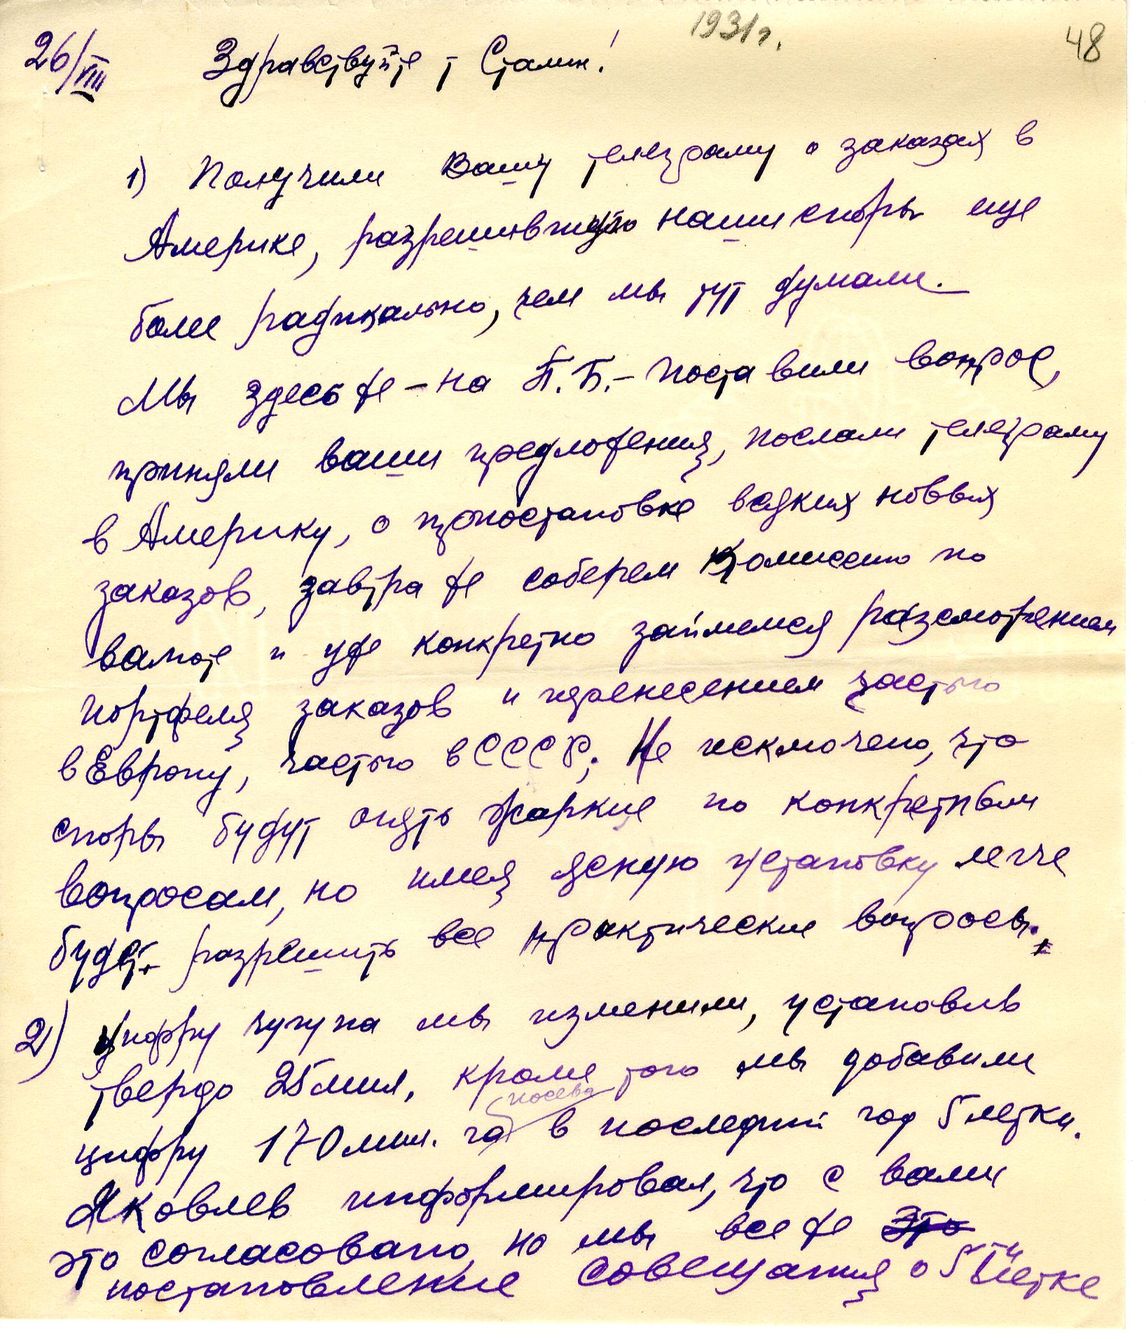 1931г.
48
26/VIII Здравствуйте т Сталин!
1) Получили Вашу телеграму о заказах в
Америке, разрешившую наши споры еще
более радикально, чем мы тут думали.
Мы здесь же – на П.Б. – поставили вопрос,
приняли ваши предложения, послали телеграму
в Америку, о приостановке всяких новых
заказов, завтра же соберем комиссию по
валюте и уже конкретно займемся разсмотрением
портфеля заказов и перенесением частью
в Европу, частью в СССР. Не исключено, что
споры будут опять жаркие по конкретным
вопросам, но имея ясную установку легче
будет разрешить все практические вопросы.
2) Цифру чугуна мы изменили, установив
твердо 25 мил, кроме того мы добавили
посева
цифру 170 мил. га в последний год 5 летки.
Яковлев информировал, что с вами
это согласовано, но мы все же это
постановление совещания о 5ти летке